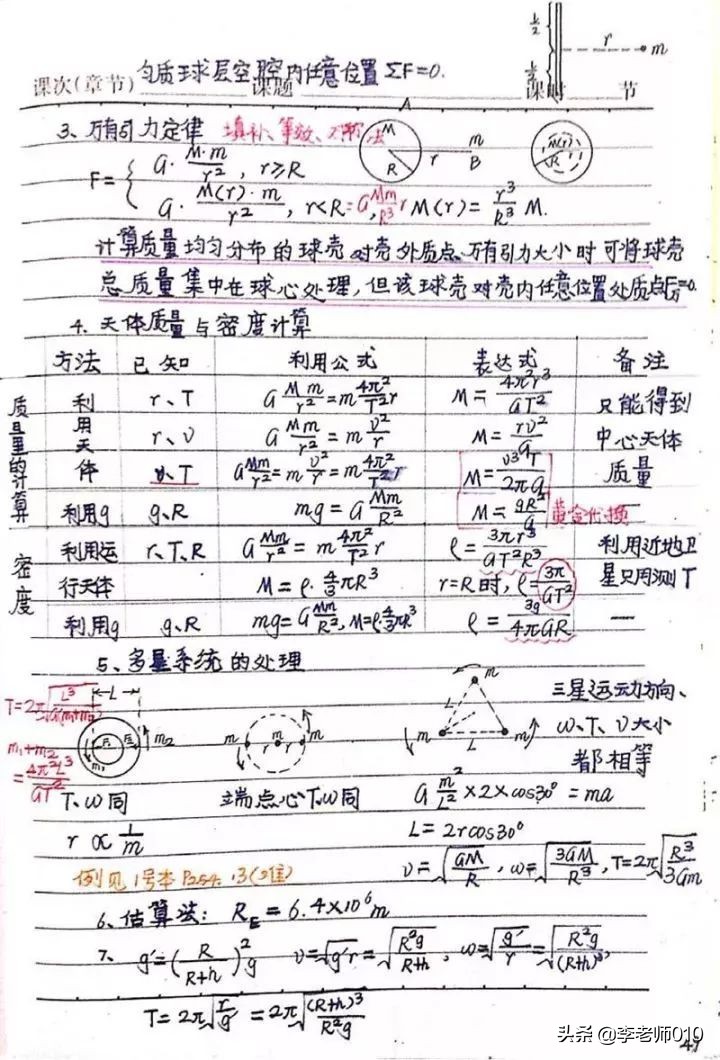 h/2
h/2
r
m
课次(章节) 匀质球层空腔内任意位置ΣF=0.
课题
课时 节
A
3、万有引力定律 填补、等效、对称法
M
R
r
m
B
M(r)
R
F={ G·M·m/r², r≥R
G·M(r)·m/r², r<R =G Mm/R³ r M(r)=r³/R³ M.
计算质量均匀分布的球壳对壳外质点万有引力大小时可将球壳
总质量集中在球心处理,但该球壳对壳内任意位置处质点F引=0.
4、天体质量与密度计算
方法 已知 利用公式 表达式 备注
质量的计算
利用天体 r、T G Mm/r²=m 4π²/T² r M=4π²r³/GT² 只能得到
r、v G Mm/r²=m v²/r M=rv²/G 中心天体
v、T G Mm/r²=m v²/r=m 4π²/T² r M=v³T/2πG 质量
利用g g、R mg=G Mm/R² M=gR²/G 黄金代换
密度
利用运行天体 r、T、R G Mm/r²=m 4π²/T² r ρ=3πr³/GT²R³ 利用近地卫
M=ρ·4/3πR³ r=R时,ρ=3π/GT² 星只用测T
利用g g、R mg=G Mm/R², M=ρ·4/3πR³ ρ=3g/4πGR —
5、多星系统的处理
T=2π√(L³/G(m₁+m₂))
m₁+m₂
=4π²L³/GT²
L
r₁
r₂
m₁
m₂
m r m r m
m
L
m L m
三星运动方向、
ω、T、v大小
都相等
T、ω同 端点心T、ω同 G m²/L²×2×cos30°=ma
r∝1/m L=2rcos30°
例见1号本P254. 13(2难) v=√(GM/R), ω=√(3GM/R³), T=2π√(R³/3Gm)
6、估算法: R_E=6.4×10⁶m
7、 g'=(R/(R+h))²g v=√(g'r)=√(R²g/(R+h)) ω=√(g'/r)=√(R²g/(R+h)³),
T=2π√(r/g')=2π√((R+h)³/R²g)
头条 @李老师010
47